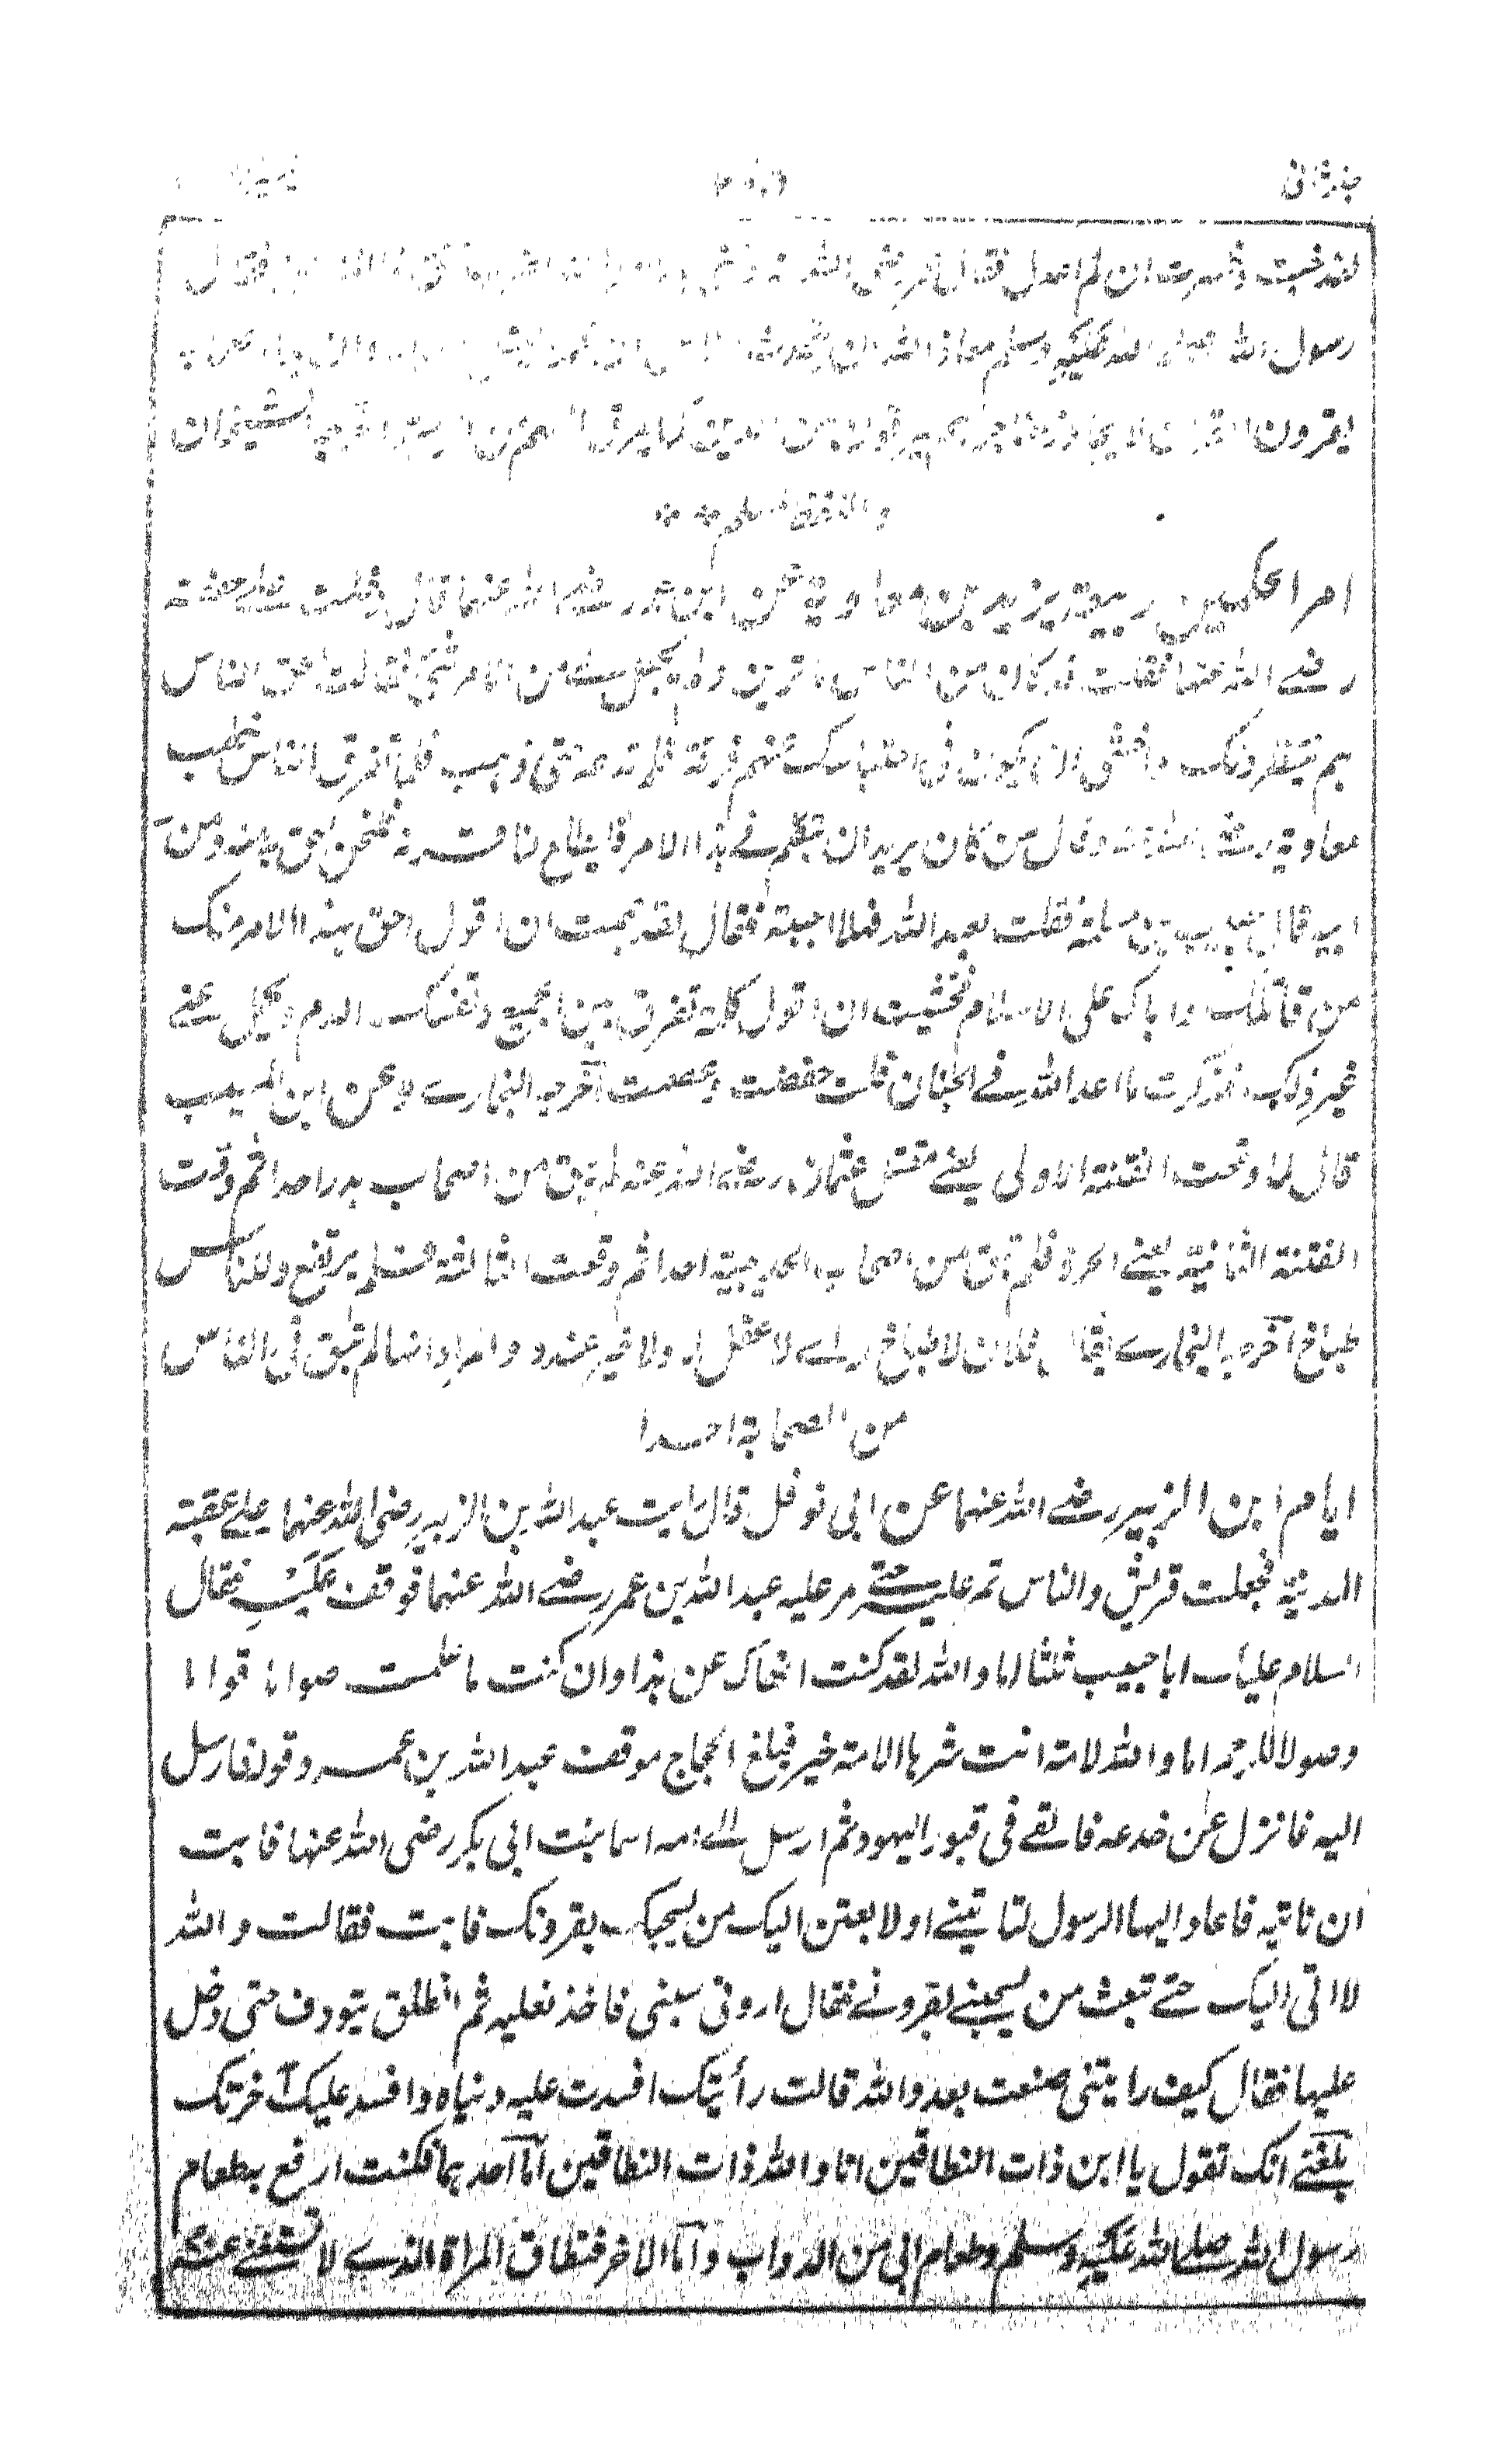 جلد ثانی
لقد خبت وخسرت ان لم اعدل فقال عمر رضی الله فقال
رسول الله صلی الله علیه وسلم معاذ الله ان یتحدث
یقرءون لا یجاوز یمرقون من الدین کما یمرق السهم من الرمیة اخرجه الشیخان
واللفظ لمسلم
امر الحکمین وبیعة یزید بن معاویة عن ابن عمر رضے الله عنهما قال دخلت علے حفصة
رضے الله عنها فقلت قد کان من الناس ما ترین ولم یجعل لے من الامر شئ فقالت الحق الناس
هم ینتظرونک واخشی ان یکون فی احتباسک عنهم فرقة فلم تدعه حتی ذهب فلما تفرق الناس خطب
معاویة رضے الله عنه وقال من کان یرید ان یتکلم فے هذا الامر فلیطلع لنا قرنه فنحن احق به منه ومن
ابیه قال حبیب بن مسلمة فقلت لعبد الله فهلا اجبته فقال لقد هممت ان اقول احق بهذا الامر منک
من قاتلک واباک علی الاسلام فخشیت ان اقول کلمة تفرق بین الجمیع وتسفک الدم ویحمل عنے
غیر ذلک فذکرت ما اعد الله فے الجنان قلت حفظت وعصمت اخرجه البخارے وعن ابن المسیب
قال لما وقعت الفتنة الاولی یعنے مقتل عثمان رضے الله عنه لم یبق من اصحاب بدر احد ثم وقعت
الفتنة الثانیة یعنے الحرة فلم یبق من اصحاب الحدیبیة احد ثم وقعت الثالثة فلم یرتفع وللناس
طباخ اخرجه البخارے یقال فلان لا طباخ له اے لا عقل له ولا خیر عنده والمراد انها لم تبق فی الناس
من الصحابة احدا
ایام ابن الزبیر رضے الله عنهما عن ابی نوفل قال رایت عبد الله بن الزبیر رضی الله عنهما علے عقبة
المدینة فجعلت قریش والناس تمر علیه حتے مر علیه عبد الله بن عمر رضے الله عنهما فوقف علیه فقال
السلام علیک ابا حبیب ثلثا اما والله لقد کنت انهاک عن هذا وان کنت ما علمت صواما قواما
وصولا للرحم اما والله لامة انت شرها لامة خیر فبلغ الحجاج موقف عبد الله بن عمر وقوله فارسل
الیه فانزل عن جذعه فالقے فی قبور الیهود ثم ارسل الے امه اسما بنت ابی بکر رضی الله عنها فابت
ان تاتیه فاعاد الیها الرسول لتاتینے او لابعثن الیک من یسحبک بقرونک فابت فقالت والله
لا اتی الیک حتے تبعث من یسحبنے بقرونے فقال ارونی سبتی فاخذ نعلیه ثم انطلق یتوذف حتی دخل
علیها فقال کیف رایتنی صنعت بعدو الله قالت رأیتک افسدت علیه دنیاه وافسد علیک آخرتک
بلغنے انک تقول یا ابن ذات النطاقین انا والله ذات النطاقین اما احدهما فکنت ارفع به طعام
رسول الله صلے الله علیه وسلم وطعام ابی من الدواب واما الاخر فنطاق المراة الذے لا تستغنے عنه